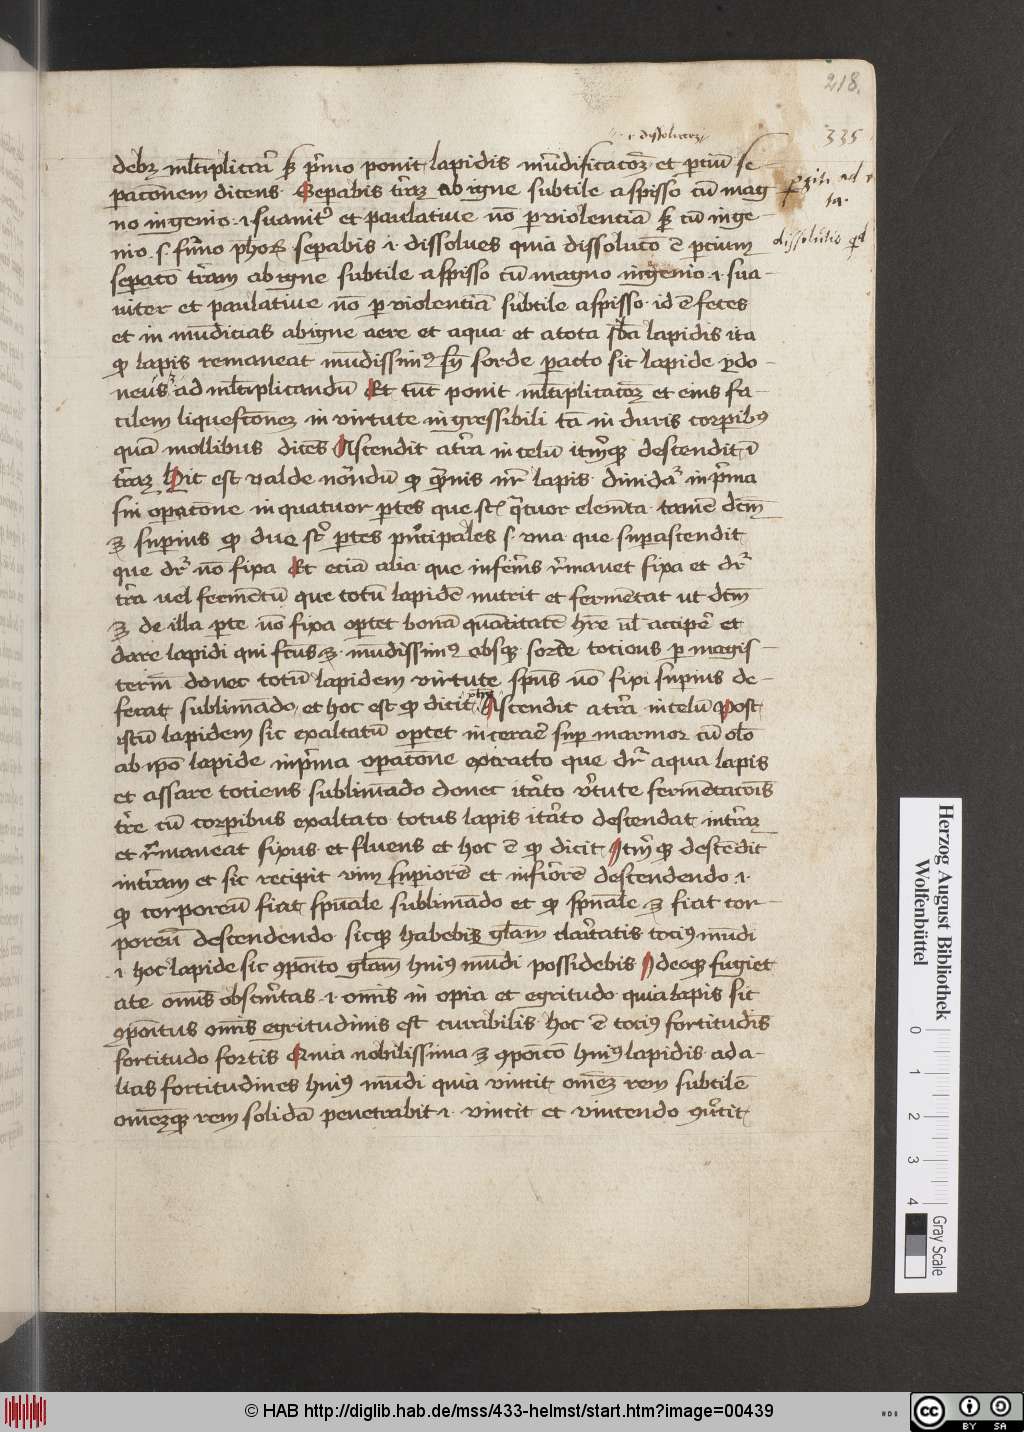 218.
335
debet mĺtiplicari sꝫ prīmo ponit lapidis mūdificacoēꝫ et partiū se-
paracōnem dicens Separabis terraꝫ ab igne subtile a spisso cū mag
no ingenio .i. suauiter et paulatiue nō per violenciā sꝫ cū inge
nio .s. separabis .i. dissolues quia dissolucō ē partium
separacō terram ab igne subtile a spisso cū magno ingenio .i. sua-
uiter et paulatiue nō per violenciā subtile a spisso id ē feces
et in mūdicias ab igne aere et aqua et a tota sb̄a lapidis ita
ꝙ lapis remaneat mūdissimꝰ sorde peracto sic lapide
ad mĺtiplicandū Et tūc ponit mĺtiplicacoēꝫ et eius fa-
cilem liquefcōneꝫ in virtute ingressibili tā in duris corporibꝰ
quā mollibus dicēs Ascendit a terra in celū itm̄qꝫ descendit ī
terraꝫ Hic est valde notandū ꝙ nr̄ lapis diuidatur in prima
sui operacōne in quatuor partes que sūt quatuor elemēta tamē dcm̄
ē superius ꝙ due sūt partes principales .s. vna que superascendit
que dr̄ nō fixa Et eciā alia que inferius remanet fixa et dr̄
terra vel fermentū que totū lapidē nutrit et fermētat ut dcm̄
ē de illa parte nō fixa oportet bonā quātitatē hr̄e vl̄ accipe et
dare lapidi qui fcūs ē mūdissimꝰ absqꝫ sorde tociens per magis-
teriū donec totū lapidem virtute spūs nō fixi superius de-
ferat sublimādo et hoc est ꝙ dicit Ascendit a terra in celū Post
istū lapidem sic exaltatū oportet incerare super marmor cū oleo
ab ipō lapide in prima operacōne extracto que dr̄ aqua lapis
et assare tociens sublimādo donec iterato virtute fermētacōis
terre cū corporibus exaltato totus lapis iterato descendat in terraꝫ
et remaneat fixus et fluens et hoc ē ꝙ dicit Itm̄ qꝫ descēdit
in terram et sic recipit vim superiorē et inferiorē descendendo .i.
ꝙ corporeū fiat spūale sublimādo et ꝙ spūale ē fiat cor-
poreū descendendo sicqꝫ habebis glām claritatis tociꝰ mūdi
.i. hoc lapide sic ꝯpoīto glām huiꝰ mūdi possidebis Ideoqꝫ fugiet
a te omīs obscuritas .i. omīs in opia et egritudo quia lapis sic
ꝯpoītus omīs egritudinis est curabilis hoc ē tociꝰ fortitudīs
fortitudo fortis Quia nobilissima ē ꝯpoīcō huiꝰ lapidis ad a-
lias fortitudines huiꝰ mūdi quia vincit omēꝫ rem subtilē
omēꝫqꝫ rem solidā penetrabit .i. vincit et vincendo
Herzog August Bibliothek
Wolfenbüttel
0 1 2 3 4
Gray Scale
© HAB http://diglib.hab.de/mss/433-helmst/start.htm?image=00439
cc BY SA